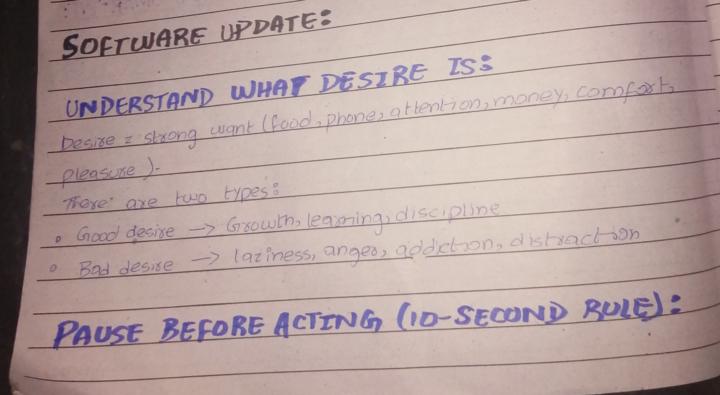 SOFTWARE UPDATE:
UNDERSTAND WHAT DESIRE IS:
Desire = strong want (food, phone, attention, money, comfort,
pleasure).
There are two types:
• Good desire → Growth, learning, discipline
• Bad desire → laziness, anger, addiction, distraction
PAUSE BEFORE ACTING (10-SECOND RULE):